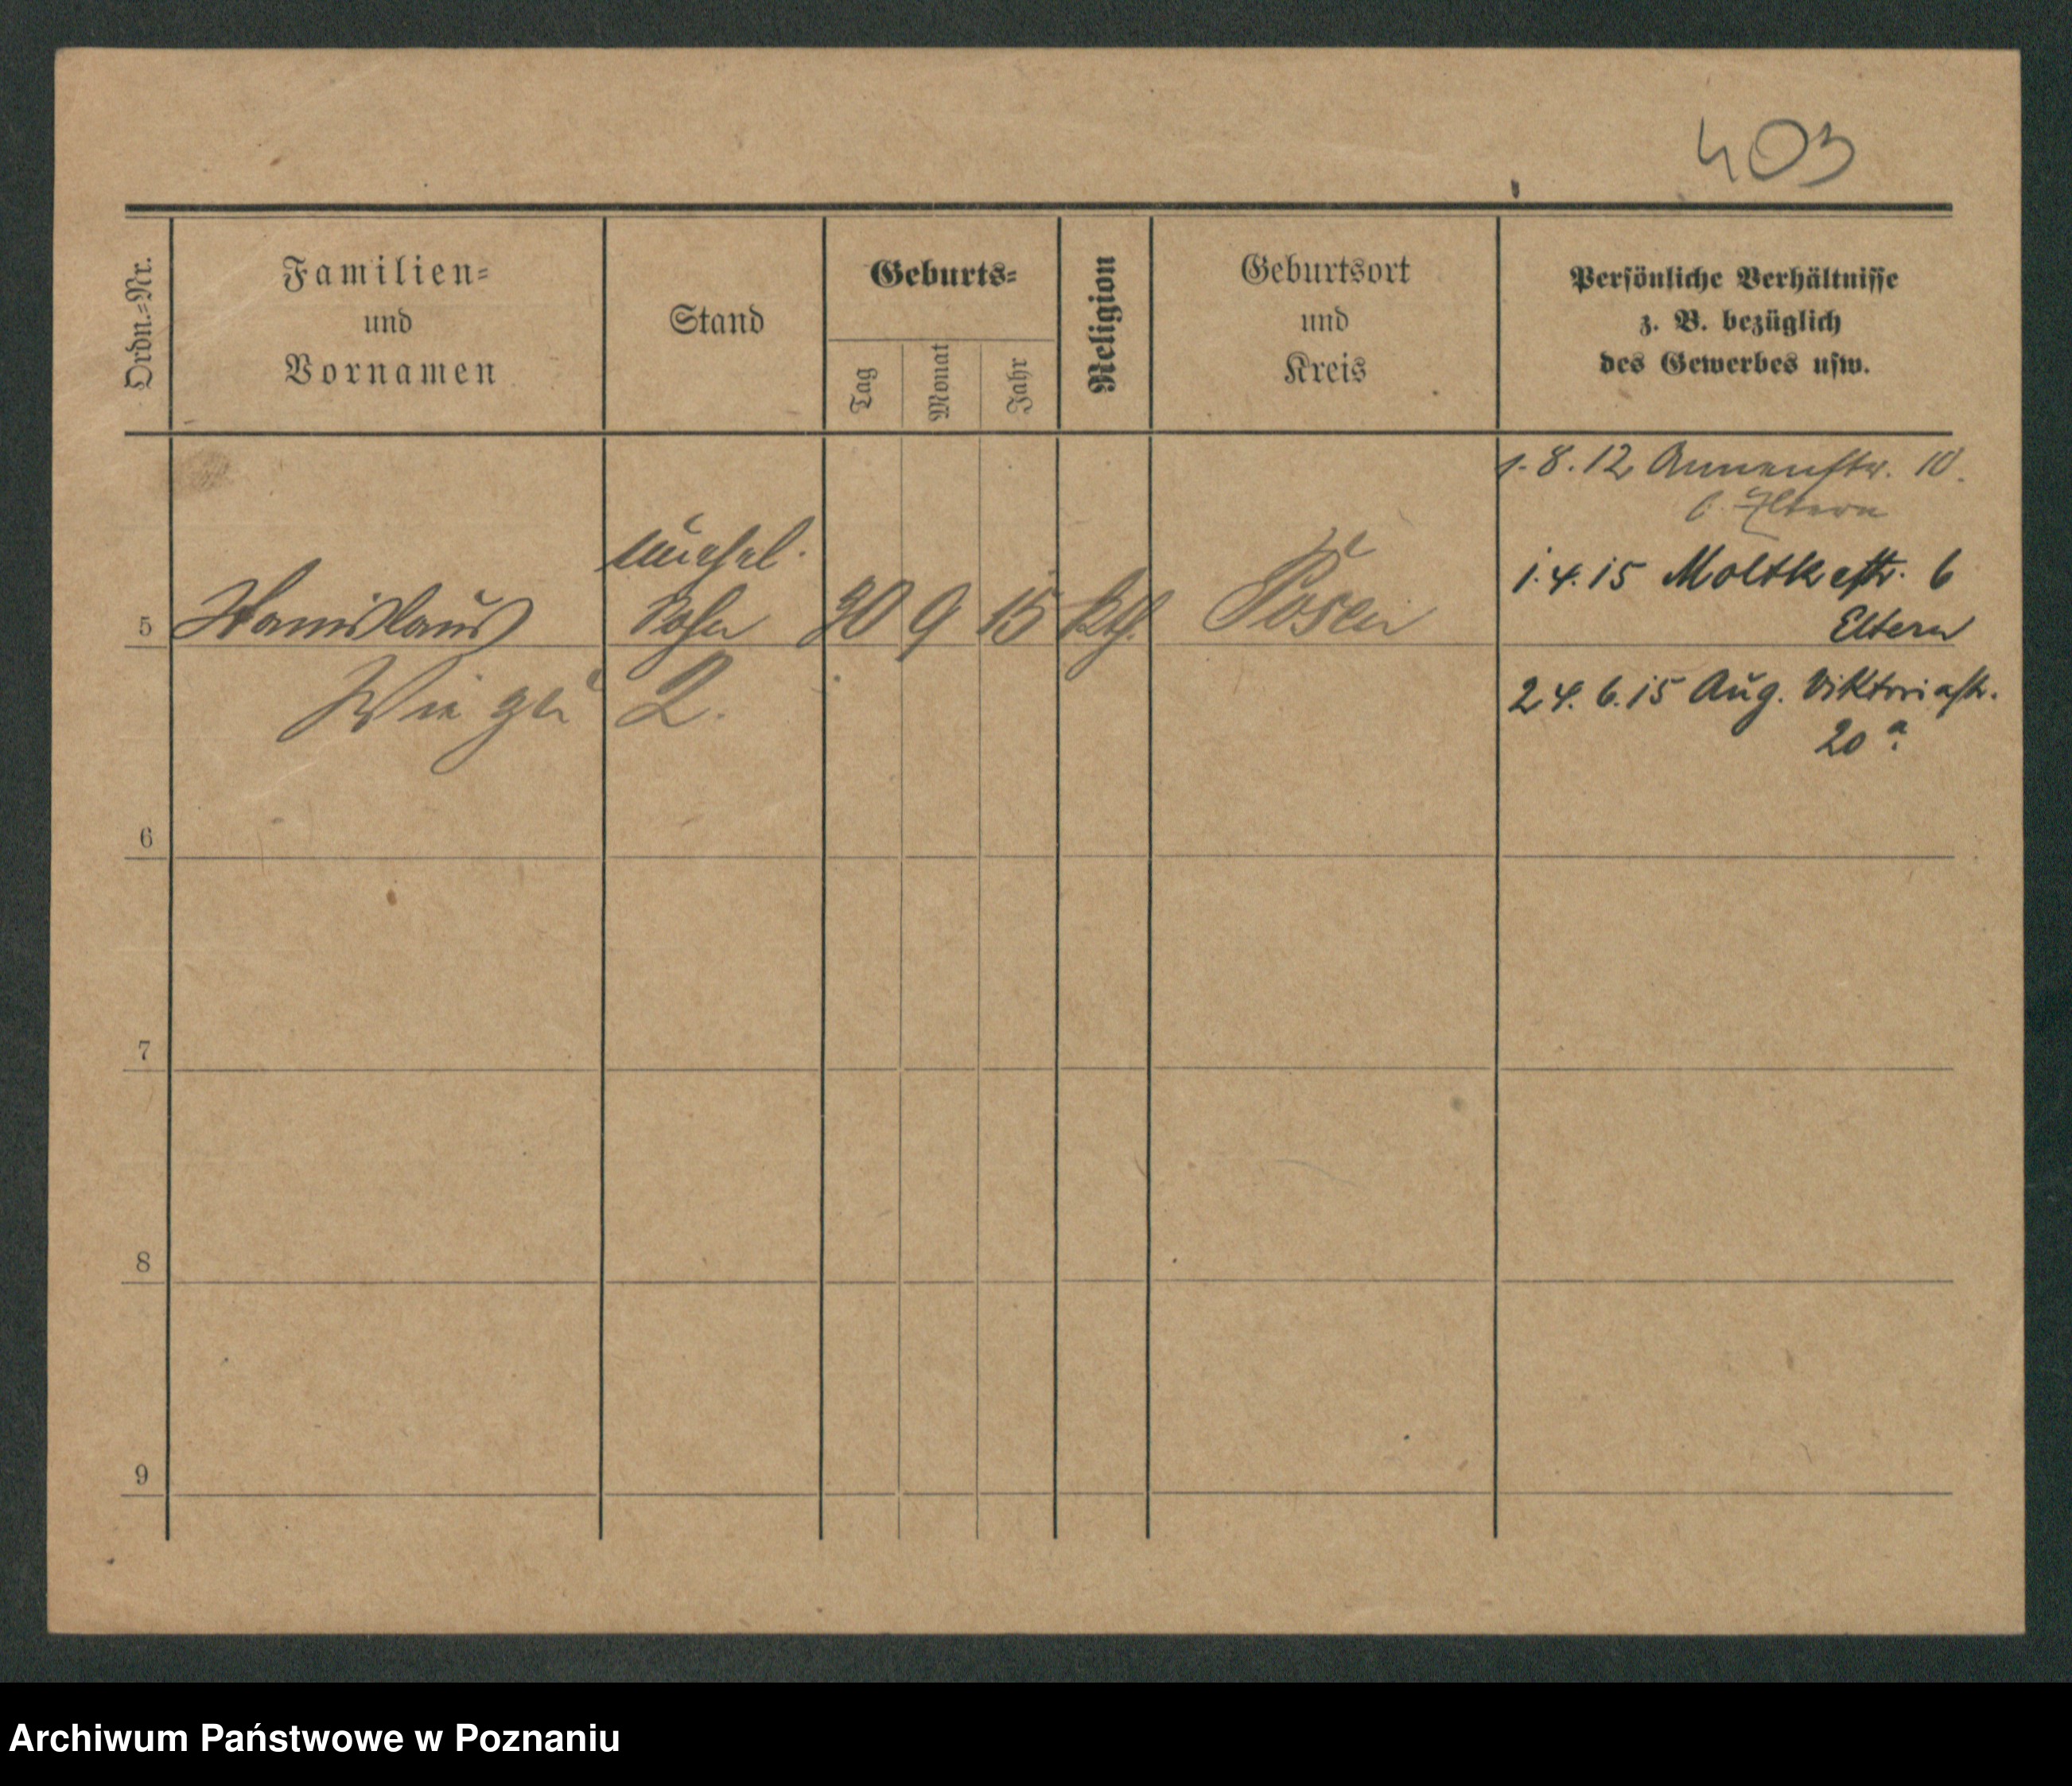 403
Ordn.=Nr.
Familien=
und
Vornamen
Stand
Geburts=
Tag
Monat
Jahr
Religion
Geburtsort
und
Kreis
Persönliche Verhältnisse
z. B. bezüglich
des Gewerbes usw.
1. 8. 12 Annenstr. 10.
b. Eltern
unehel.
5 Stanislaus Sohn 30 9 15 kth. Posen
1. 4. 15 Moltkestr. 6
Eltern
Wie zu 2.
24. 6. 15 Aug. Viktoriastr.
20 a.
6
7
8
9
Archiwum Państwowe w Poznaniu